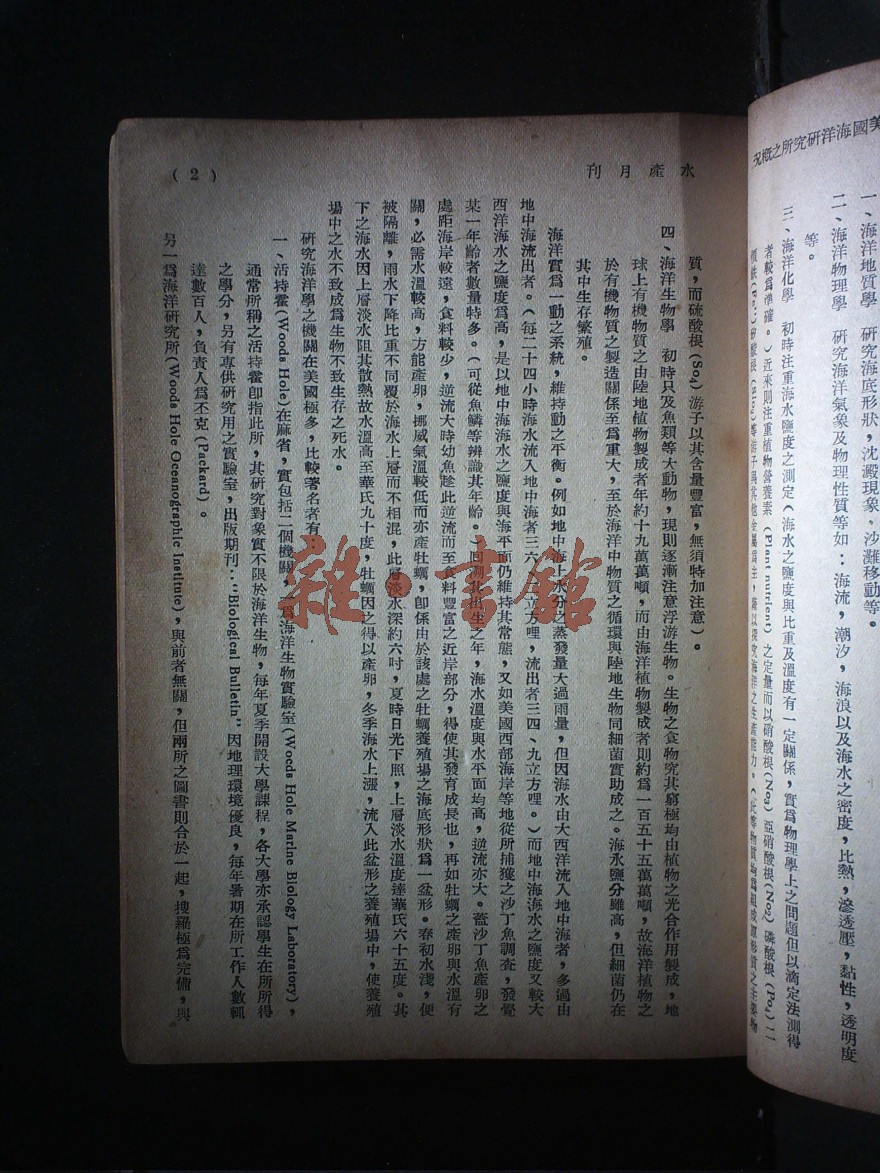 美國海洋研究所之概況
一、海洋地質學　研究海底形狀，沈澱現象，沙灘移動等。
二、海洋物理學　研究海洋氣象及物理性質等如：海流，潮汐，海浪以及海水之密度，比熱，滲透壓，黏性，透明度
等。
三、海洋化學　初時注重海水鹽度之測定（海水之鹽度與比重及溫度有一定關係，實爲物理學上之問題但以滴定法測得
者較爲準確。）近來則注重植物營養素（Plant nutrient）之定量而以硝酸根(No₃)亞硝酸根(No₂)磷酸根(Po₄)二
水產月刊
(2)
質，而硫酸根(So₄)游子以其含量豐富，無須特加注意）。
四、海洋生物學　初時只及魚類等大動物，現則逐漸注意浮游生物。生物之食物究其窮極均由植物之光合作用製成，地
球上有機物質之由陸地植物製成者年約十九萬萬噸，而由海洋植物製成者則約爲一百五十五萬萬噸，故海洋植物之
於有機物質之製造關係至爲重大，至於海洋中物質之循環與陸地生物同細菌實助成之。海水鹽分雖高，但細菌仍在
其中生存繁殖。
海洋實爲一動之系統，維持動之平衡。例如地中海上水分之蒸發量大過雨量，但因海水由大西洋流入地中海者，多過由
地中海流出者。（每二十四小時海水流入地中海者三六、立方哩，流出者三四、九立方哩。）而地中海海水之鹽度又較大
西洋海水之鹽度爲高，是以地中海海水之鹽度與海平面仍維持其常態，又如美國西部海岸等地從所捕獲之沙丁魚調查，發覺
某一年齡者數量特多。（可從魚鱗等辨識其年齡。）回溯此出生之年，海水溫度與水平面均高，逆流亦大。蓋沙丁魚產卵之
處距海岸較遠，食料較少，逆流大時幼魚趁此逆流而至食料豐富之近岸部分，得使其發育成長也，再如牡蠣之產卵與水溫有
關，必需水溫較高，方能產卵，挪威氣溫較低而亦產牡蠣，卽係由於該處之牡蠣養殖場之海底形狀爲一盆形。春初水淺，便
被隔離，雨水下降比重不同覆於海水上層而不相混，此層淡水深約六吋，夏時日光下照，上層淡水溫度達華氏六十五度。其
下之海水因上層淡水阻其散熱故水溫高至華氏九十度，牡蠣因之得以產卵，冬季海水上漲，流入此盆形之養殖場中，使養殖
場中之水不致成爲生物不致生存之死水。
研究海洋學之機關在美國極多，比較著名者有
一、活持霍(Woods Hole)在麻省，實包括二個機關，一爲海洋生物實驗室(Woods Hole Marine Biology Laboratory)，
通常所稱之活持霍卽指此所，其研究對象實不限於海洋生物，每年夏季開設大學課程，各大學亦承認學生在所所得
之學分，另有專供研究用之實驗室，出版期刊："Biological Bulletin" 因地理環境優良，每年暑期在所工作人數輒
達數百人，負責人爲丕克(Packard)。
另一爲海洋研究所(Woods Hole Oceanographic Institute)，與前者無關，但兩所之圖書則合於一起，搜羅極爲完備，與
雜·書館